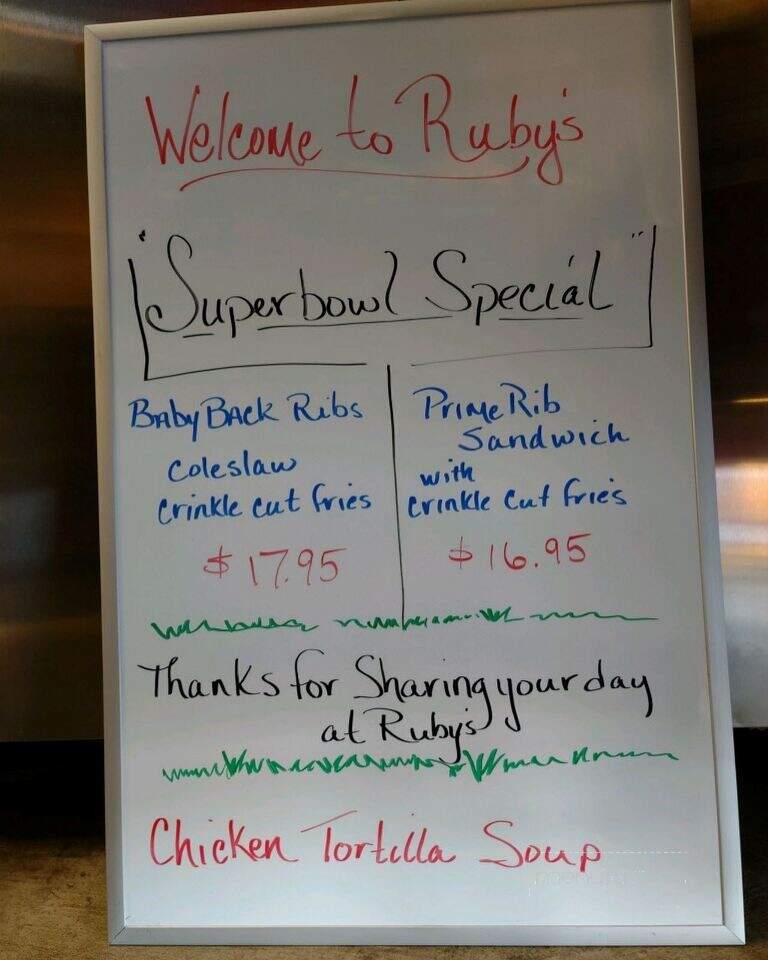 Welcome to Ruby's
"Superbowl Special"
Baby Back Ribs
Coleslaw
Crinkle cut fries
$17.95
Prime Rib
Sandwich
with
Crinkle Cut fries
$16.95
Thanks for Sharing your day
at Ruby's
Chicken Tortilla Soup